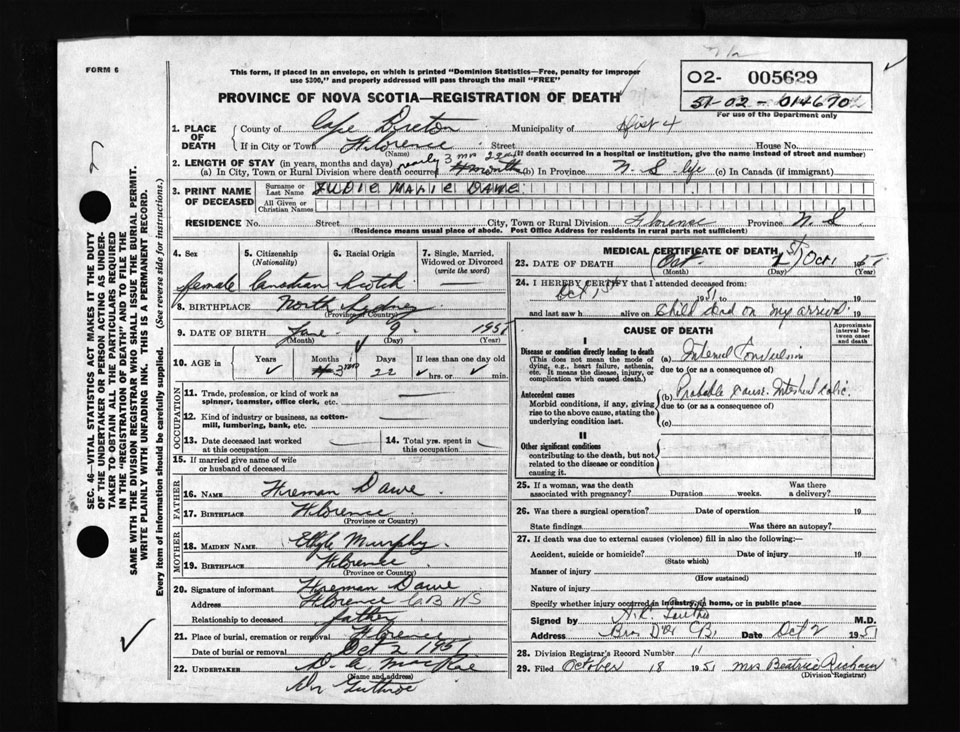 FORM 6
This form, if placed in an envelope, on which is printed "Dominion Statistics—Free, penalty for improper
use $300," and properly addressed will pass through the mail "FREE"
O2- 005629
51-02-014670
For use of the Department only
PROVINCE OF NOVA SCOTIA—REGISTRATION OF DEATH
SEC. 46—VITAL STATISTICS ACT MAKES IT THE DUTY
OF THE UNDERTAKER OR PERSON ACTING AS UNDER-
TAKER TO OBTAIN ALL THE PARTICULARS REQUIRED
IN THE "REGISTRATION OF DEATH" AND TO FILE THE
SAME WITH THE DIVISION REGISTRAR WHO SHALL ISSUE THE BURIAL PERMIT.
WRITE PLAINLY WITH UNFADING INK. THIS IS A PERMANENT RECORD.
Every item of information should be carefully supplied. (See reverse side for instructions.)
1. PLACE OF DEATH County of Cape Breton Municipality of Dist 4
If in City or Town Florence Street House No.
(Name) (If death occurred in a hospital or institution, give the name instead of street and number)
2. LENGTH OF STAY (in years, months and days) nearly 3 mo 22
(a) In City, Town or Rural Division where death occurred 4 month (b) In Province N. S. life (c) In Canada (if immigrant)
3. PRINT NAME OF DECEASED Surname or Last Name JUDIE MARIE DAWE
All Given or Christian Names
RESIDENCE No. Street City, Town or Rural Division Florence Province N. S
(Residence means usual place of abode. Post Office Address for residents in rural parts not sufficient)
4. Sex 5. Citizenship (Nationality) 6. Racial Origin 7. Single, Married, Widowed or Divorced (write the word)
female Canadian Scotch —
8. BIRTHPLACE North Sydney
(Province or Country)
9. DATE OF BIRTH June 9 1951
(Month) (Day) (Year)
10. AGE in Years Months Days If less than one day old
3 22 hrs. or min.
OCCUPATION
11. Trade, profession, or kind of work as spinner, teamster, office clerk, etc.
12. Kind of industry or business, as cotton-mill, lumbering, bank, etc.
13. Date deceased last worked at this occupation 14. Total yrs. spent in this occupation
15. If married give name of wife or husband of deceased
FATHER
16. NAME Hireman Dawe
17. BIRTHPLACE Florence
(Province or Country)
MOTHER
18. MAIDEN NAME Murphy
19. BIRTHPLACE Florence
(Province or Country)
20. Signature of informant Hireman Dawe
Address Florence CB NS
Relationship to deceased father
21. Place of burial, cremation or removal Florence
Date of burial or removal Oct 2 1951
22. UNDERTAKER D. A. MacRae
(Name and address)
MEDICAL CERTIFICATE OF DEATH
23. DATE OF DEATH Oct
(Month) (Day) (Year)
24. I HEREBY CERTIFY that I attended deceased from:
Oct 1st 1951 to 19
and last saw h alive on child dead on my arrival 19
CAUSE OF DEATH
Approximate interval between onset and death
I
Disease or condition directly leading to death
(This does not mean the mode of dying, e.g., heart failure, asthenia, etc. It means the disease, injury, or complication which caused death.)
(a) Convulsion
due to (or as a consequence of)
Antecedent causes
Morbid conditions, if any, giving rise to the above cause, stating the underlying condition last.
(b) Probable cause. Intestinal colic.
due to (or as a consequence of)
(c)
II
Other significant conditions
contributing to the death, but not related to the disease or condition causing it.
25. If a woman, was the death associated with pregnancy? Duration weeks. Was there a delivery?
26. Was there a surgical operation? Date of operation 19
State findings Was there an autopsy?
27. If death was due to external causes (violence) fill in also the following:—
Accident, suicide or homicide? Date of injury 19
(State which)
Manner of injury
(How sustained)
Nature of injury
Specify whether injury occurred in industry, in home, or in public place
Signed by M.D.
Address Bras D'or CB. Date Oct 2 1951
28. Division Registrar's Record Number 11
29. Filed October 18 1951 Mrs Beatrice
(Division Registrar)